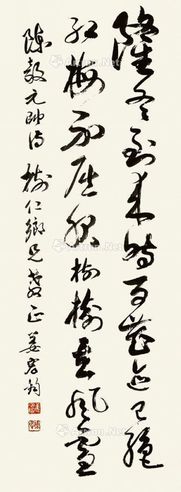 隆冬到来时百花迹已绝
红梅不屈服树树立风雪
陈毅元帅诗 树仁乡兄教正 姜东钧